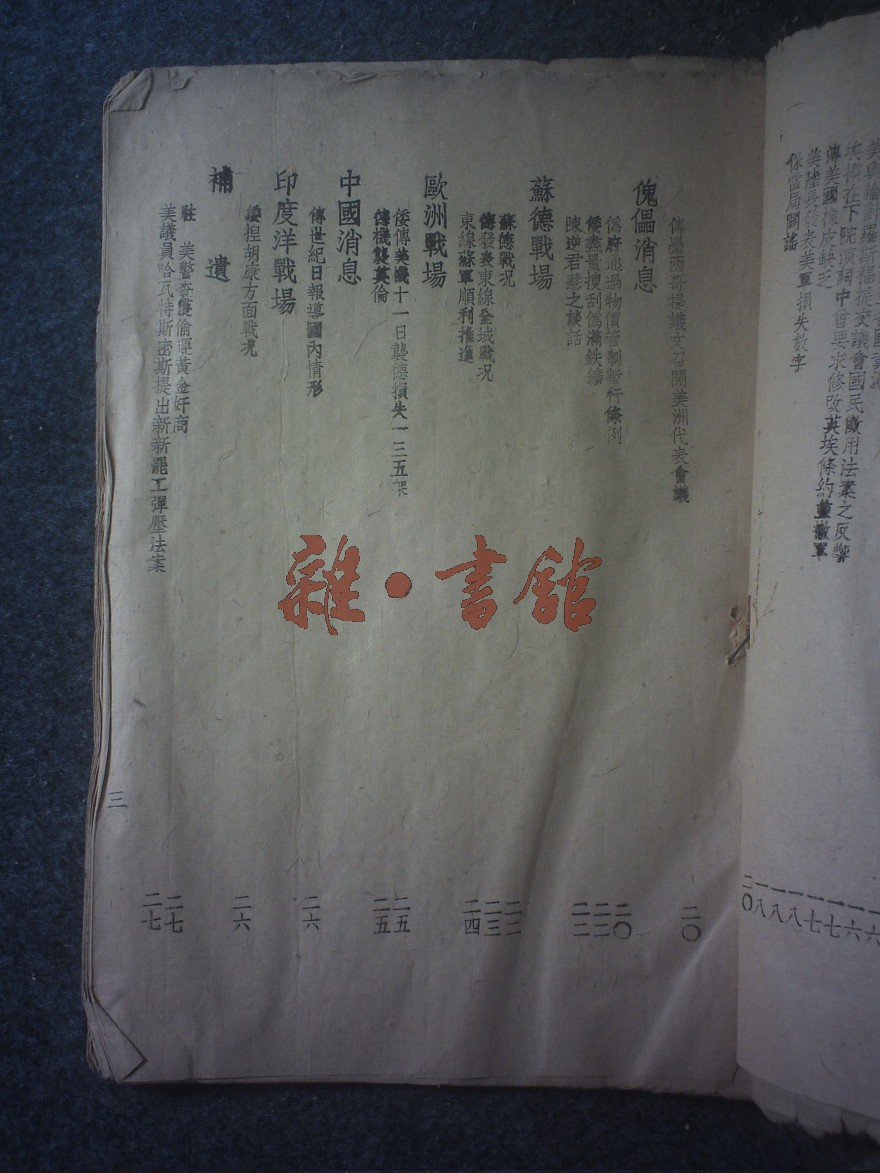 埃登在下院演詞中會要求修改英埃條約並撤軍
傳美國橡皮缺乏
美陸長發表美軍損失數字
保當局闢謠
一六
一六
一七
一七
一八
一八
二〇
傳墨西哥提議文召開美洲代表會議
二〇
傀儡消息
偽府通過物價管制暫行條例
二〇
倭盡量搜刮偽滿鉄鑛
二二
陳逆君慧之談話
二二
蘇德戰場
蘇德戰况
二二
德發表東線全域戰况
二三
東線蘇軍順利推進
二四
歐洲戰場
倭傳美機十一日襲德損失一三五架
二五
德機襲英倫
二五
中國消息
傳世紀日報導國內情形
二六
印度洋戰場
緬胡康方面戰况
二六
補遺
駐美警查獲偷運黃金奸商
二七
美議員哈瓦特斯密斯提出新新罷工彈壓法案
二七
三
雜·書館